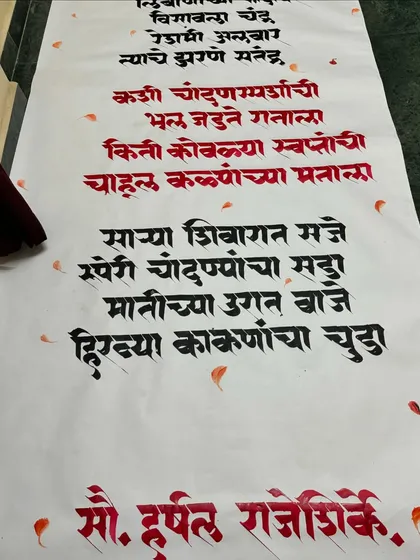 विसावला चंद्र
रेशमी अलवार
त्याचे झरणे सतंद्र
कशी चांदणस्पर्शाची
भूल जडते
किती कोवळ्या स्वप्नांची
चाहूल कळ्यांच्या मनाला
साऱ्या शिवारात सजे
रुपेरी चांदण्यांचा सडा
मातीच्या उरात वाजे
हिरव्या काकणांचा चुडा
सौ. हर्षल राजेशिर्के.